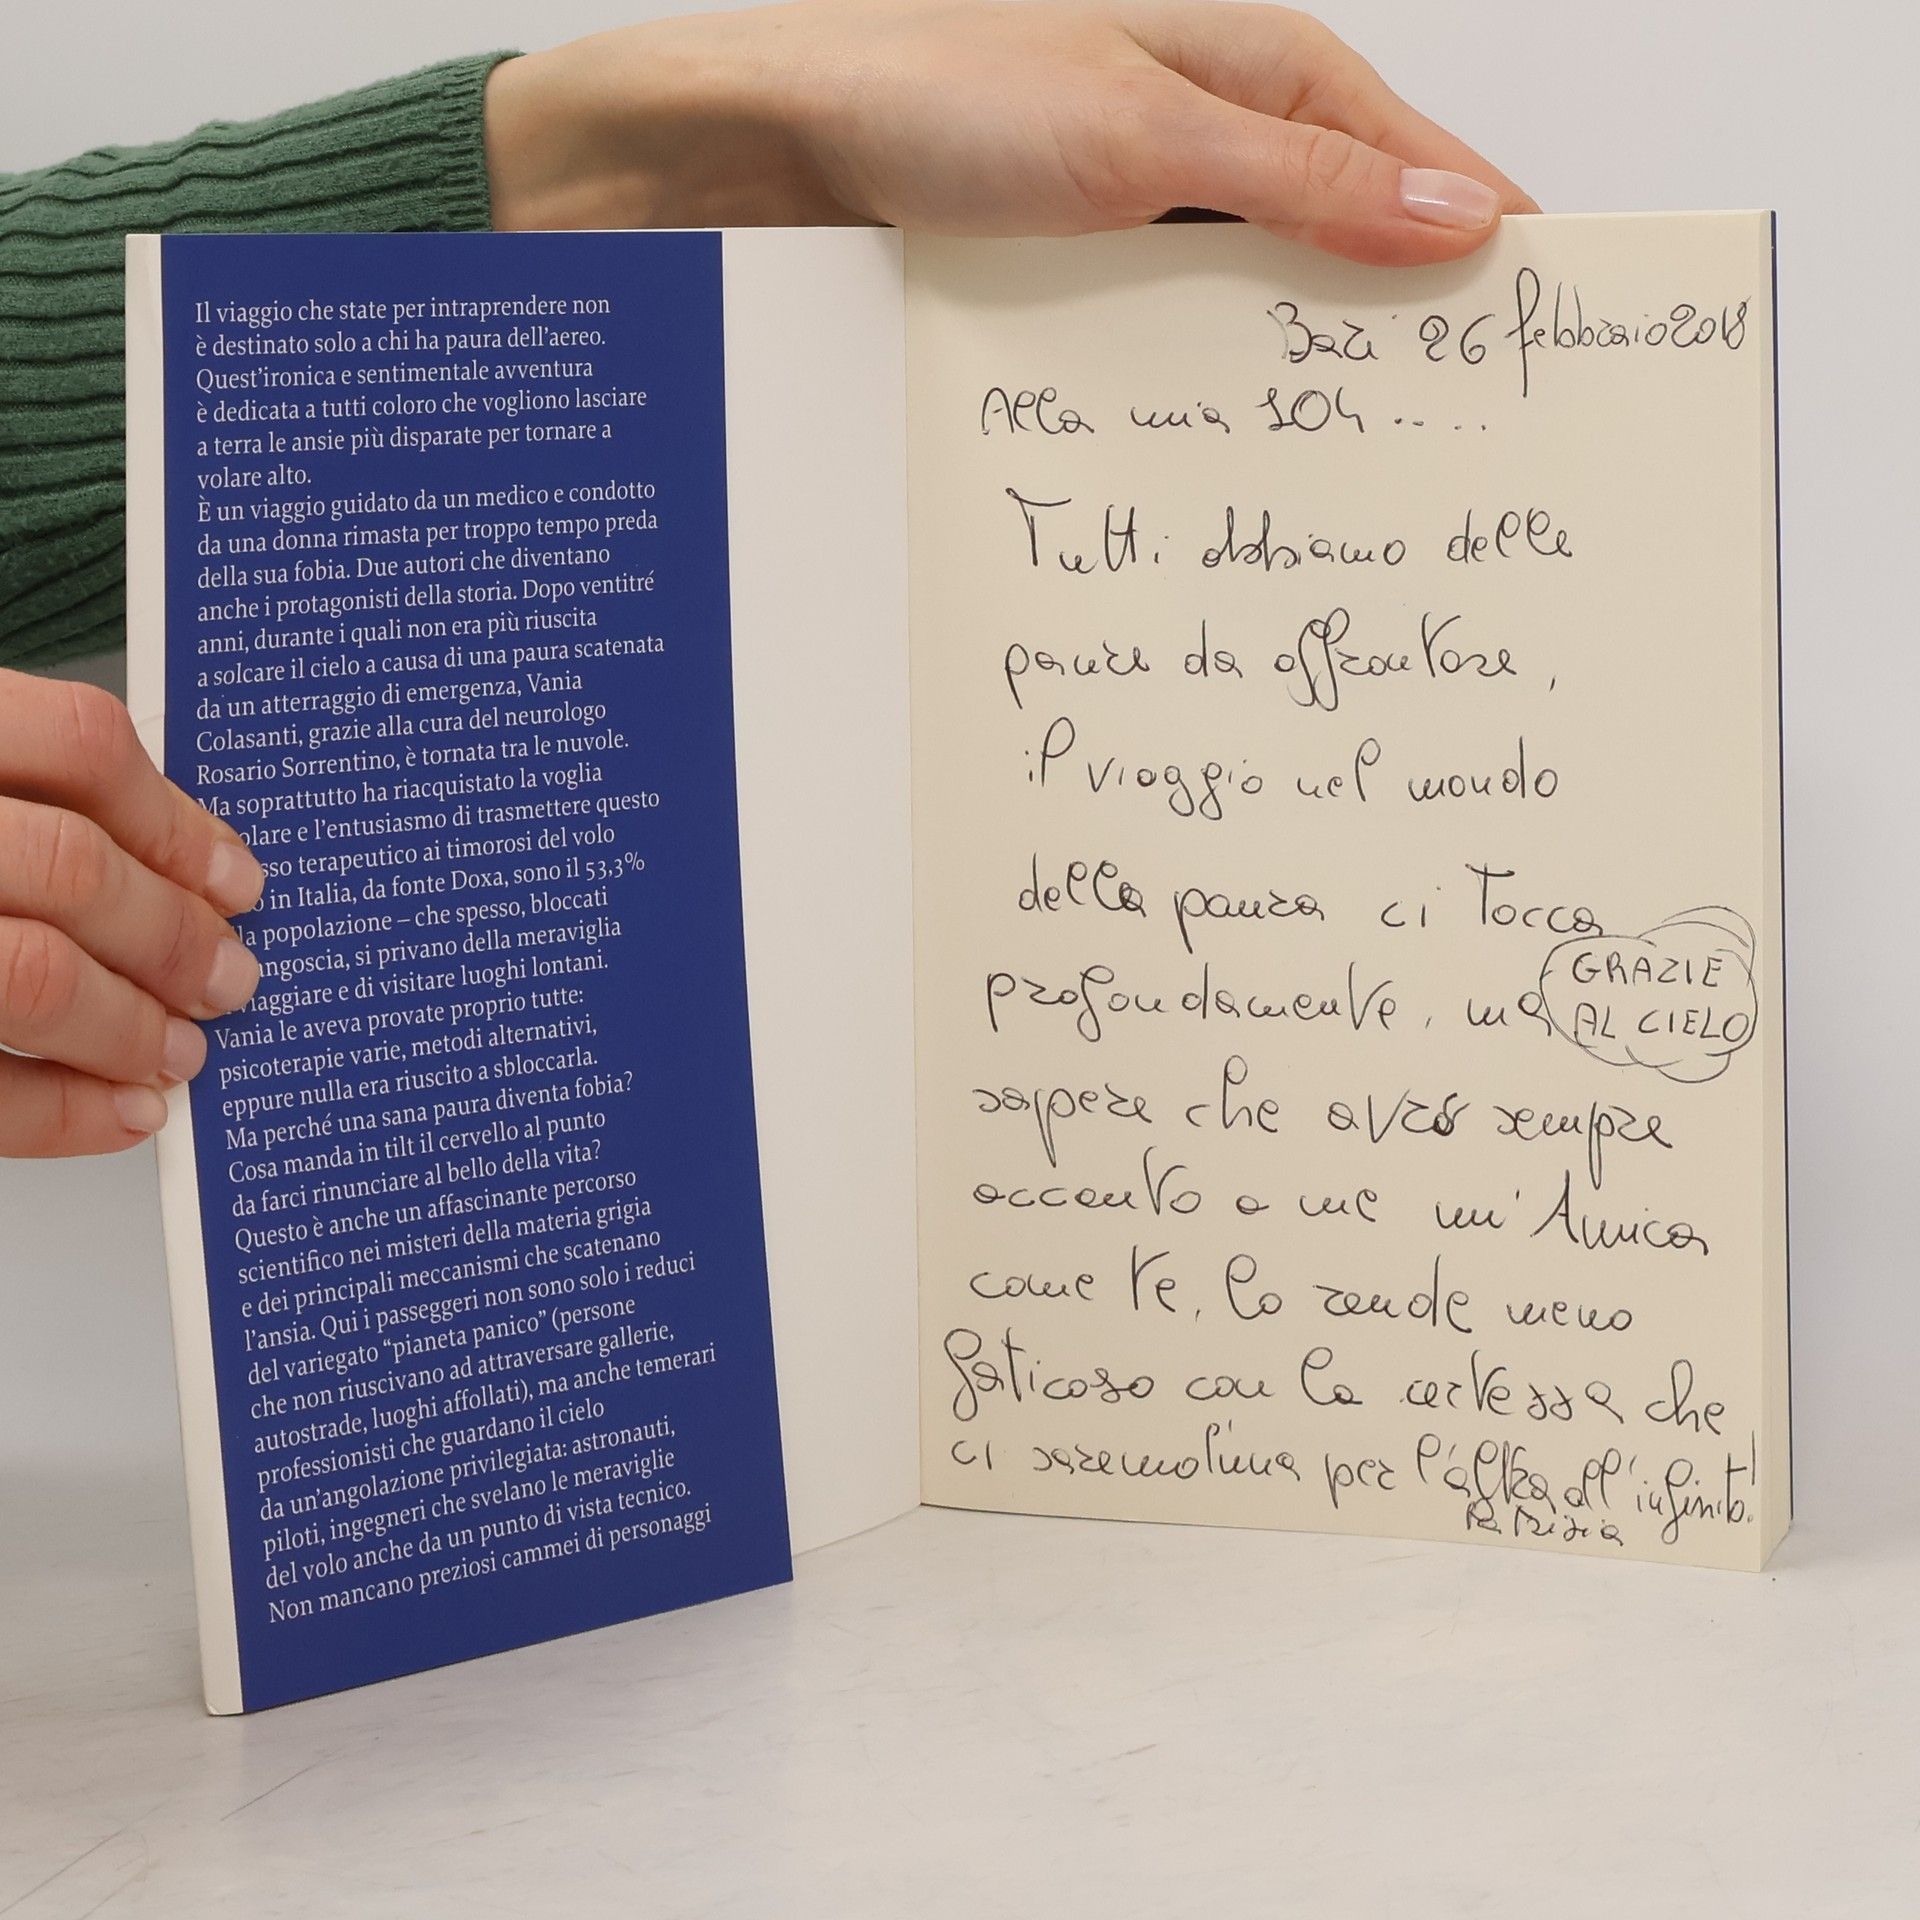 Il viaggio che state per intraprendere non
è destinato solo a chi ha paura dell'aereo.
Quest'ironica e sentimentale avventura
è dedicata a tutti coloro che vogliono lasciare
a terra le ansie più disparate per tornare a
volare alto.
È un viaggio guidato da un medico e condotto
da una donna rimasta per troppo tempo preda
della sua fobia. Due autori che diventano
anche i protagonisti della storia. Dopo ventitré
anni, durante i quali non era più riuscita
a solcare il cielo a causa di una paura scatenata
da un atterraggio di emergenza, Vania
Colasanti, grazie alla cura del neurologo
Rosario Sorrentino, è tornata tra le nuvole.
Ma soprattutto ha riacquistato la voglia
olare e l'entusiasmo di trasmettere questo
sso terapeutico ai timorosi del volo
in Italia, da fonte Doxa, sono il 53,3%
la popolazione – che spesso, bloccati
angoscia, si privano della meraviglia
viaggiare e di visitare luoghi lontani.
Vania le aveva provate proprio tutte:
psicoterapie varie, metodi alternativi,
eppure nulla era riuscito a sbloccarla.
Ma perché una sana paura diventa fobia?
Cosa manda in tilt il cervello al punto
da farci rinunciare al bello della vita?
Questo è anche un affascinante percorso
scientifico nei misteri della materia grigia
e dei principali meccanismi che scatenano
l'ansia. Qui i passeggeri non sono solo i reduci
del variegato “pianeta panico” (persone
che non riuscivano ad attraversare gallerie,
autostrade, luoghi affollati), ma anche temerari
professionisti che guardano il cielo
da un'angolazione privilegiata: astronauti,
piloti, ingegneri che svelano le meraviglie
del volo anche da un punto di vista tecnico.
Non mancano preziosi cammei di personaggi
Bari 26 febbraio 2018
Alla mia 104 .. ..
Tutti abbiamo delle
paure da affrontare,
il viaggio nel mondo
della paura ci tocca
profondamente, ma
GRAZIE
AL CIELO
sapere che avrò sempre
accanto a me un'Amica
come te, lo rende meno
faticoso con la certezza che
ci saremo l'una per l'altra all'infinito!
Patrizia